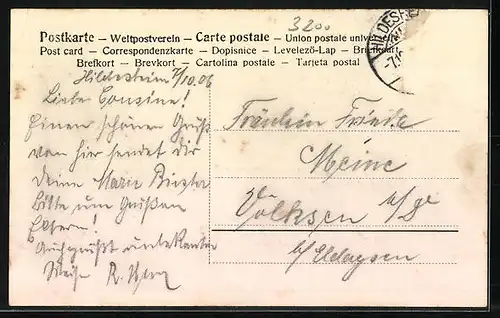 3200
Postkarte – Weltpostverein – Carte postale – Union postale univer
Post card – Correspondenzkarte – Dopisnice – Levelező-Lap – Briefkaart
Brefkort – Brevkort – Cartolina postale – Tarjeta postal
HILDESHE
Hildesheim 7/10.06
Liebe Cousine!
Einen schönen Gruß
von hier sendet dir
deine Marie
Bitte um Grüßen
Eltern!
Auch grüßt unbekannter
Weise R.
Fräulein Frieda
Meine
Völksen a/D
b/Eldagsen